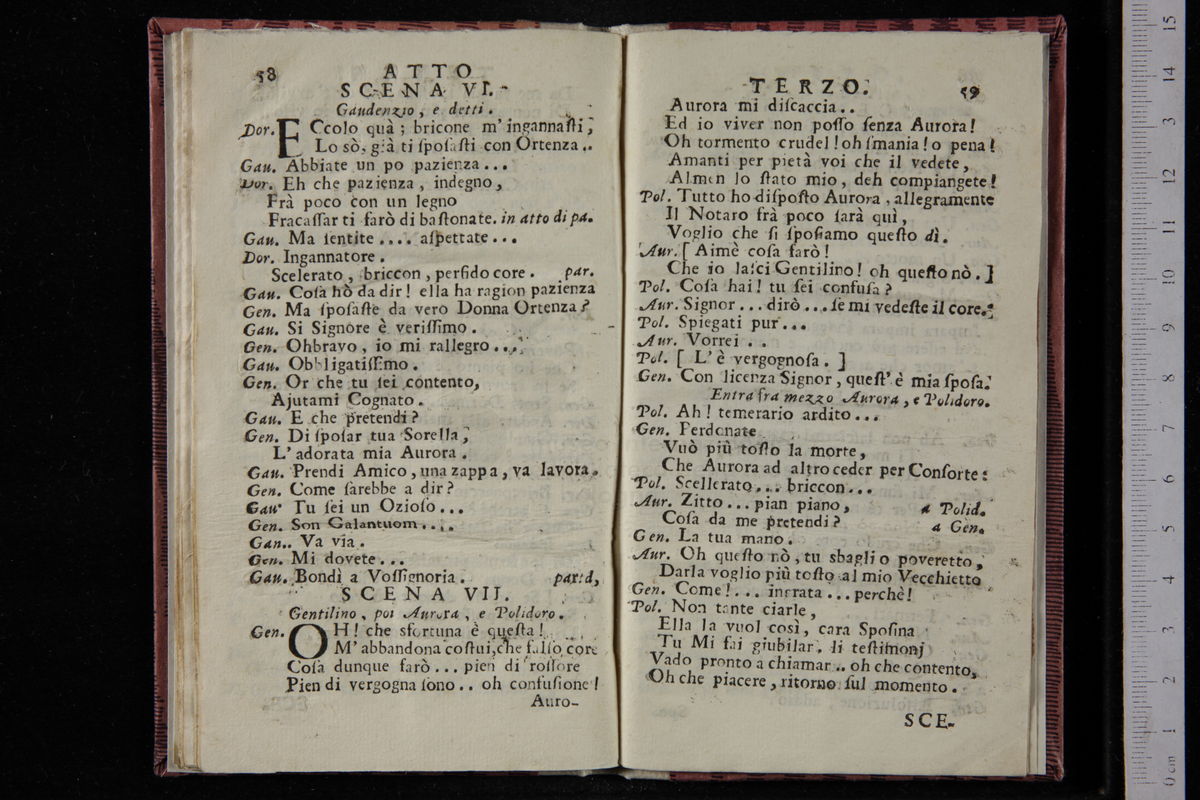 58
ATTO
SCENA VI.
Gaudenzio, e detti.
Dor. ECcolo quà; bricone m'ingannaſti,
Lo sò, già ti ſpoſaſti con Ortenza..
Gau. Abbiate un po pazienza...
Dor. Eh che pazienza, indegno,
Frà poco con un legno
Fracaſſar ti farò di baſtonate. in atto di pa.
Gau. Ma ſentite.... aſpettate...
Dor. Ingannatore.
Scelerato, briccon, perfido core. par.
Gau. Coſa hò da dir! ella ha ragion pazienza
Gen. Ma ſpoſaſte da vero Donna Ortenza?
Gau. Si Signore è veriſſimo.
Gen. Ohbravo, io mi rallegro....
Gau. Obbligatiſſimo.
Gen. Or che tu ſei contento,
Ajutami Cognato.
Gau. E che pretendi?
Gen. Di ſpoſar tua Sorella,
L'adorata mia Aurora.
Gau. Prendi Amico, una zappa, va lavora.
Gen. Come ſarebbe a dir?
Gau. Tu ſei un Ozioſo...
Gen. Son Galantuom....
Gau.. Va via.
Gen. Mi dovete...
Gau. Bondì a Voſſignoria. part.
SCENA VII.
Gentilino, poi Aurora, e Polidoro.
Gen. OH! che sfortuna è queſta!
M'abbandona coſtui, che falſo core
Coſa dunque farò... pien di roſſore
Pien di vergogna ſono.. oh confuſione!
Auro-
TERZO.
59
Aurora mi diſcaccia..
Ed io viver non poſſo ſenza Aurora!
Oh tormento crudel! oh ſmania! o pena!
Amanti per pietà voi che il vedete,
Almen lo ſtato mio, deh compiangete!
Pol. Tutto ho diſpoſto Aurora, allegramente
Il Notaro frà poco ſarà quì,
Voglio che ſi ſpoſiamo queſto dì.
Aur. [ Aimè coſa farò!
Che io laſci Gentilino! oh queſto nò. ]
Pol. Coſa hai! tu ſei confuſa?
Aur. Signor... dirò... ſe mi vedeſte il core..
Pol. Spiegati pur...
Aur. Vorrei..
Pol. [ L'è vergognoſa. ]
Gen. Con licenza Signor, queſt'è mia ſpoſa.
Entra fra mezzo Aurora, e Polidoro.
Pol. Ah! temerario ardito...
Gen. Perdonate
Vuò più toſto la morte,
Che Aurora ad altro ceder per Conſorte:
Pol. Scellerato... briccon...
Aur. Zitto... pian piano, a Polid.
Coſa da me pretendi? a Gen.
Gen. La tua mano.
Aur. Oh queſto nò, tu sbaglio poveretto,
Darla voglio più toſto al mio Vecchietto
Gen. Come!... ingrata... perchè!
Pol. Non tante ciarle,
Ella la vuol così, cara Spoſina
Tu Mi fai giubilar, li teſtimonj
Vado pronto a chiamar.. oh che contento,
Oh che piacere, ritorno ſul momento.
SCE-